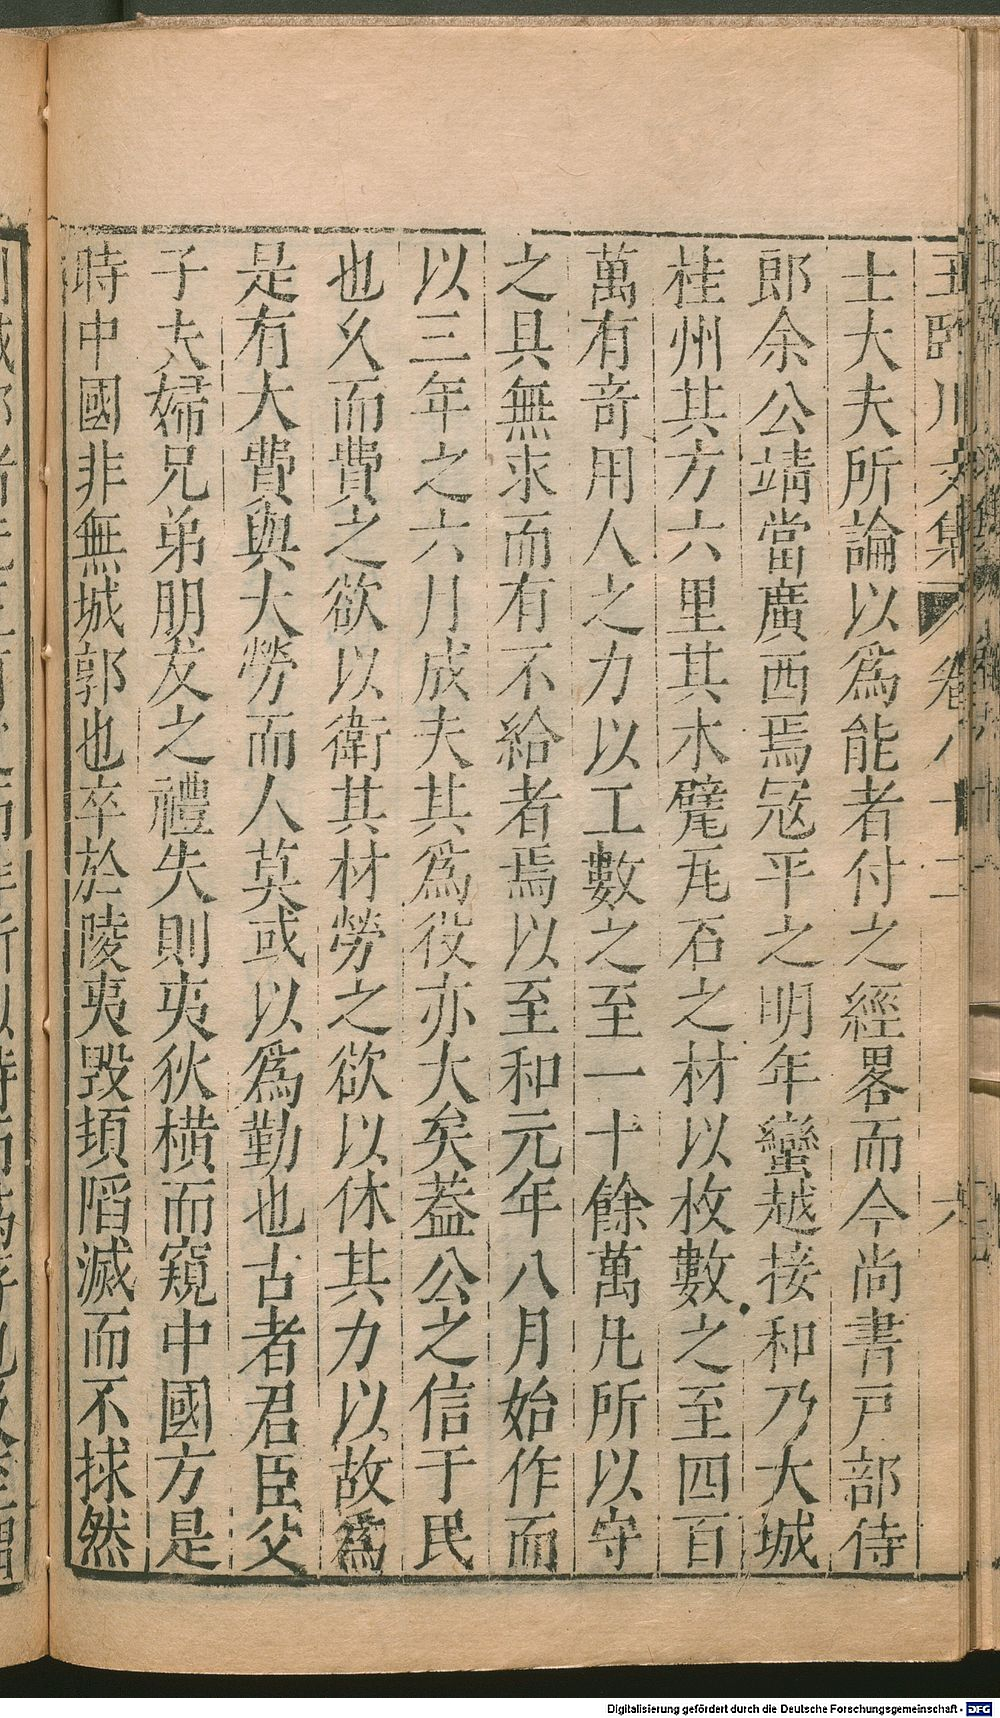 王臨川文集 卷八十二 六
士大夫所論以爲能者付之經畧而今尚書戸部侍
郎余公靖當廣西焉宼平之明年蠻越接和乃大城
桂州其方六里其木甓瓦石之材以枚數之至四百
萬有竒用人之力以工數之至一十餘萬凡所以守
之具無求而有不給者焉以至和元年八月始作而
以三年之六月成夫其爲役亦大矣葢公之信于民
也久而費之欲以衛其材勞之欲以休其力以故爲
是有大費與大勞而人莫或以爲勤也古者君臣父
子夫婦兄弟朋友之禮失則夷狄横而窺中國方是
時中國非無城郭也卒於陵夷毁頓䧟滅而不捄然
Digitalisierung gefördert durch die Deutsche Forschungsgemeinschaft - DFG